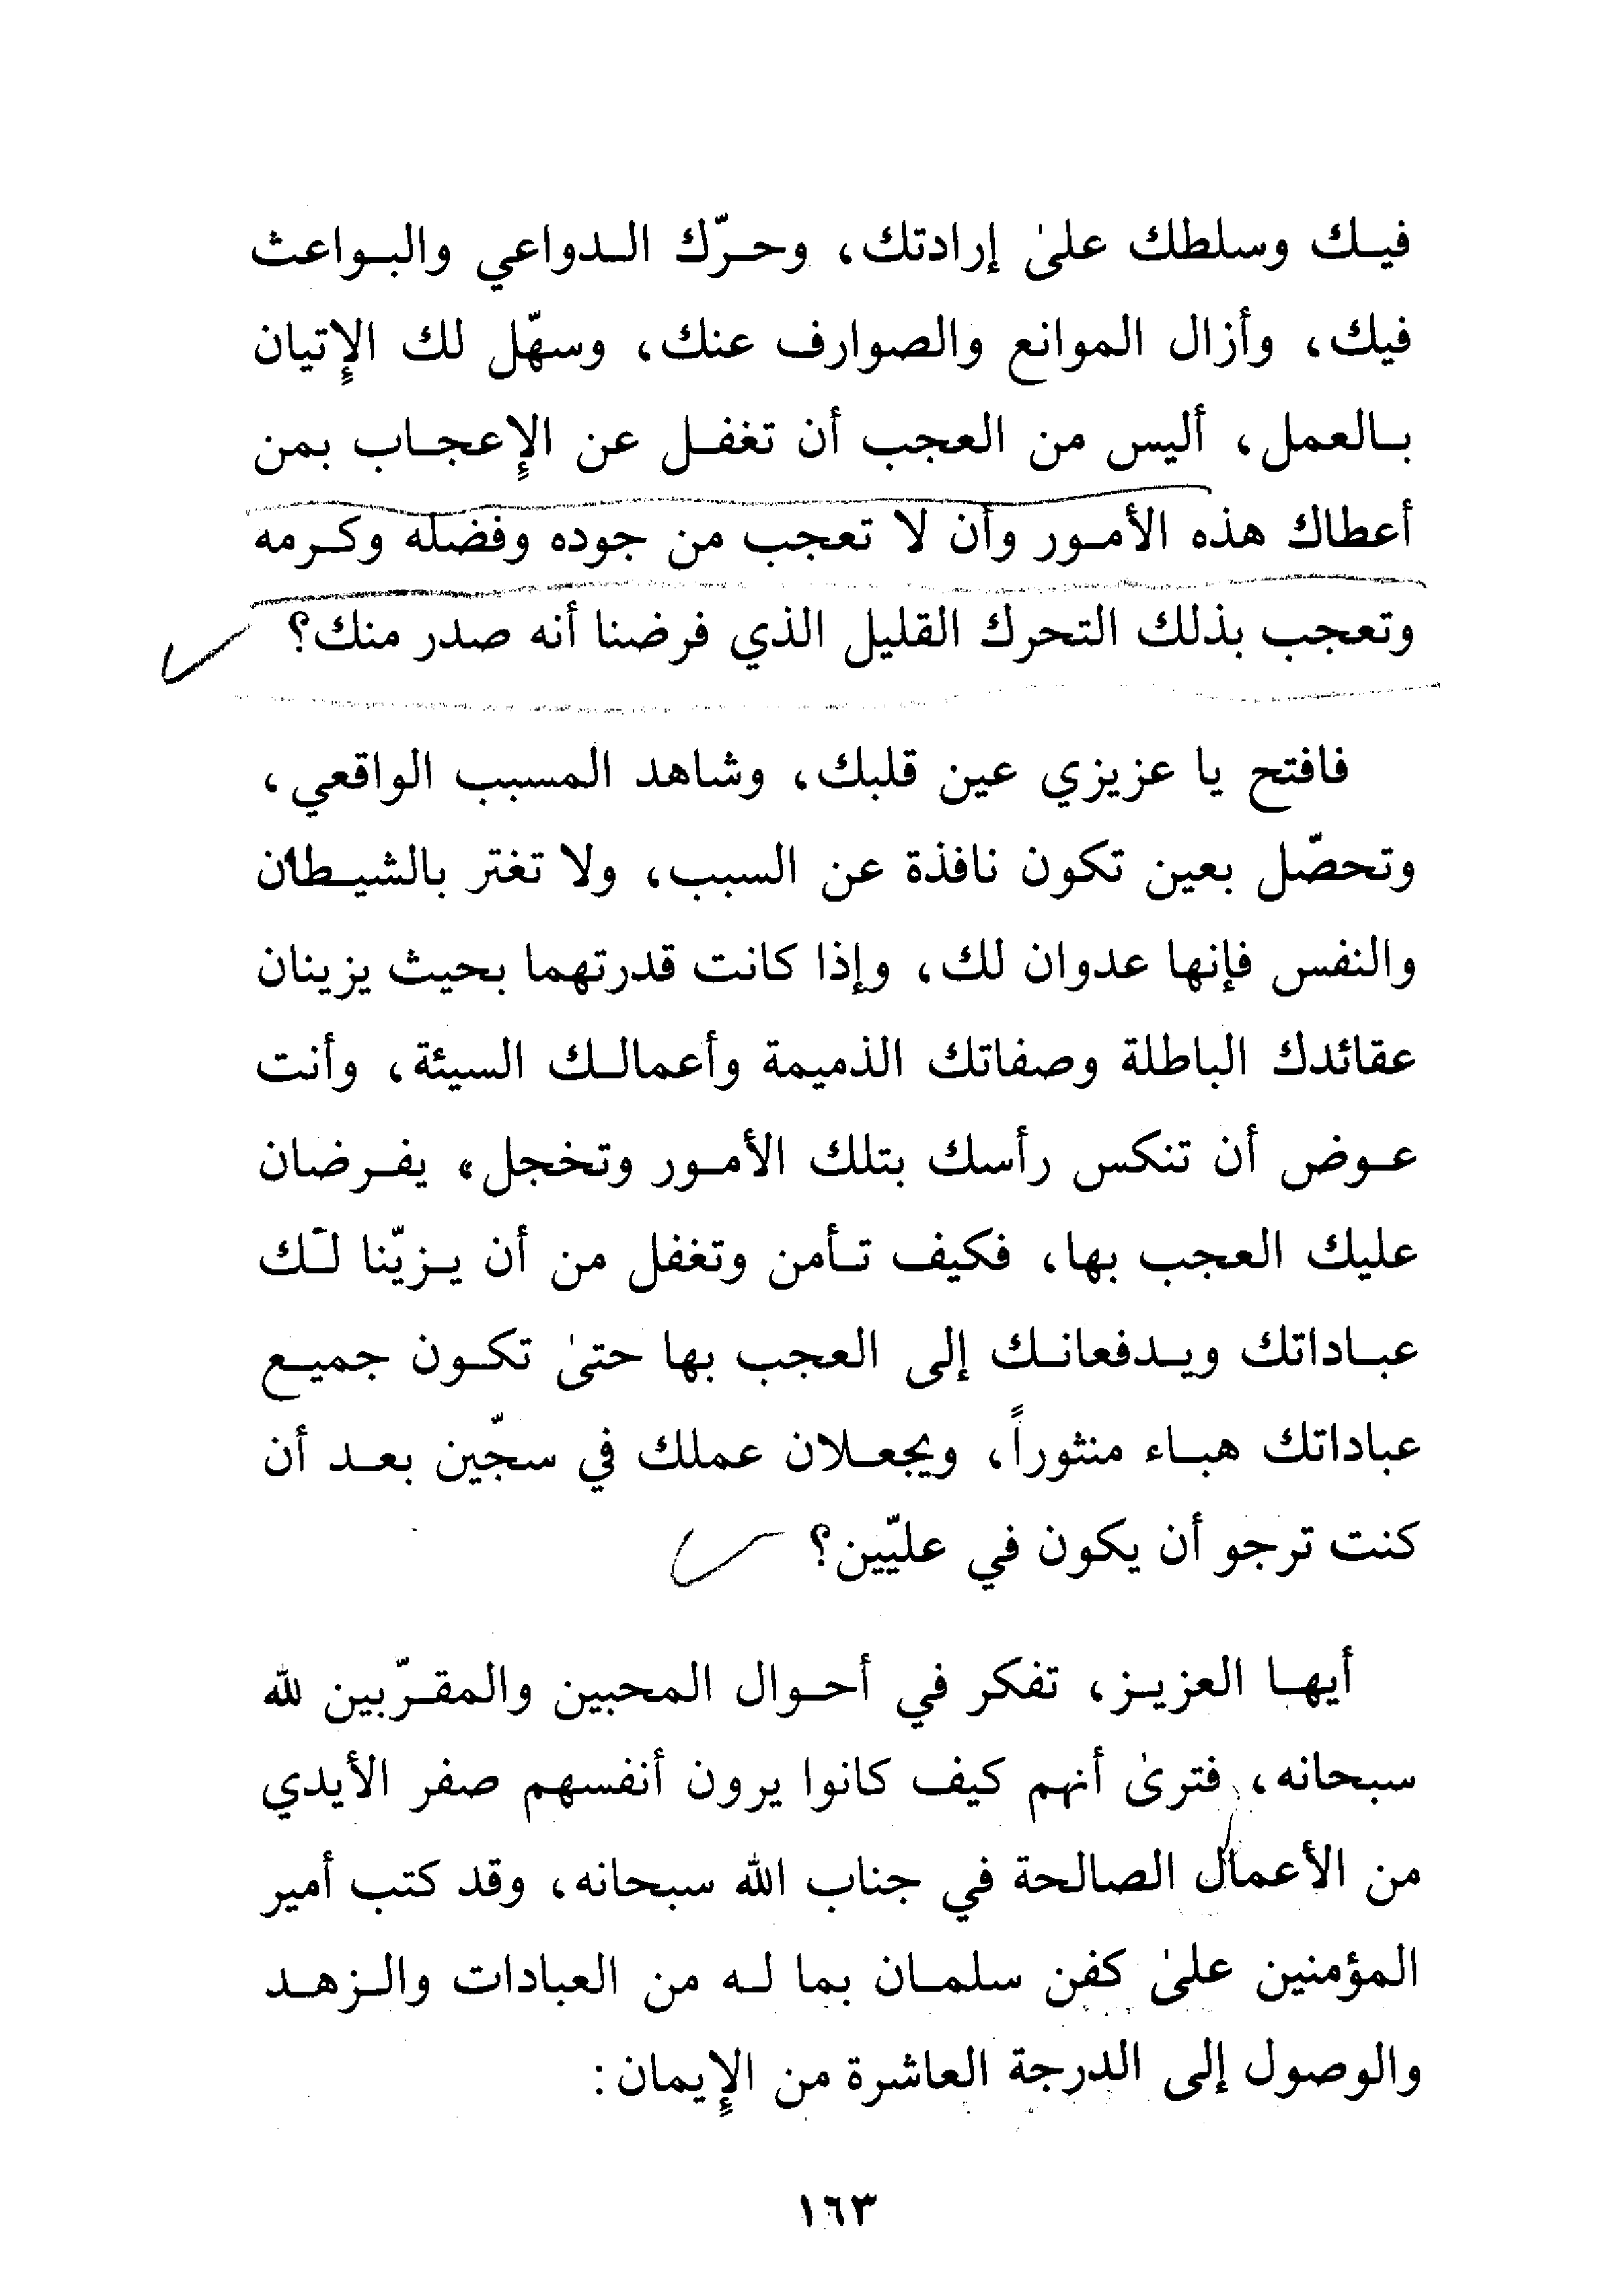 فيك وسلطك علىٰ إرادتك، وحرّك الدواعي والبواعث
فيك، وأزال الموانع والصوارف عنك، وسهّل لك الإتيان
بالعمل، أليس من العجب أن تغفل عن الإعجاب بمن
أعطاك هذه الأمور وأن لا تعجب من جوده وفضله وكرمه
وتعجب بذلك التحرك القليل الذي فرضنا أنه صدر منك؟
فافتح يا عزيزي عين قلبك، وشاهد المسبب الواقعي،
وتحصّل بعين تكون نافذة عن السبب، ولا تغتر بالشيطان
والنفس فإنها عدوان لك، وإذا كانت قدرتهما بحيث يزينان
عقائدك الباطلة وصفاتك الذميمة وأعمالك السيئة، وأنت
عوض أن تنكس رأسك بتلك الأمور وتخجل، يفرضان
عليك العجب بها، فكيف تأمن وتغفل من أن يزيّنا لك
عباداتك ويدفعانك إلى العجب بها حتىٰ تكون جميع
عباداتك هباء منثوراً، ويجعلان عملك في سجّين بعد أن
كنت ترجو أن يكون في عليّين؟
أيها العزيز، تفكر في أحوال المحبين والمقرّبين لله
سبحانه، فترىٰ أنهم كيف كانوا يرون أنفسهم صفر الأيدي
من الأعمال الصالحة في جناب الله سبحانه، وقد كتب أمير
المؤمنين علىٰ كفن سلمان بما له من العبادات والزهد
والوصول إلى الدرجة العاشرة من الإيمان:
١٦٣